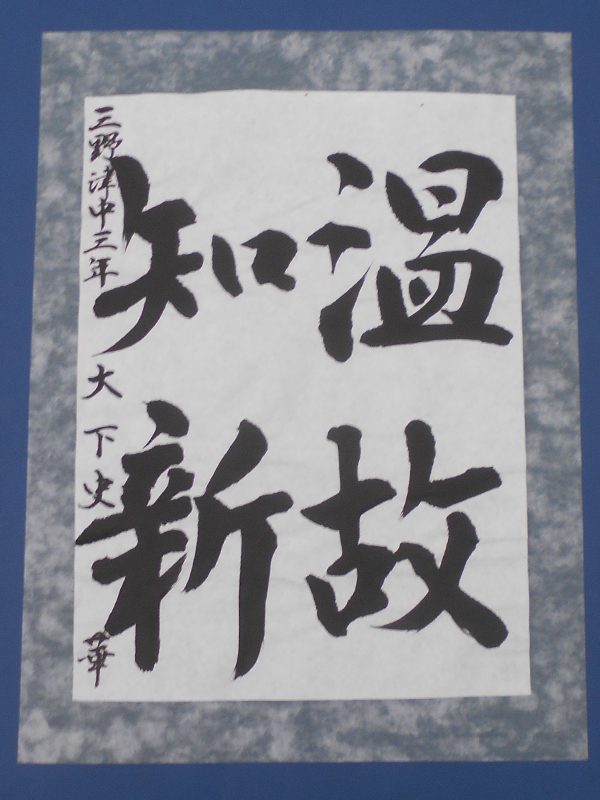 温故
知新
三野津中三年 大下史華